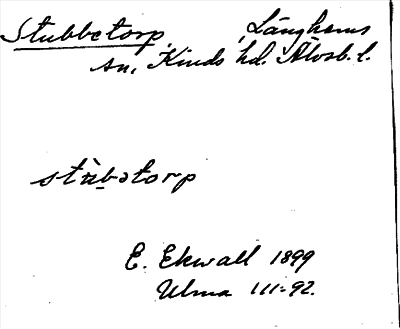 Stubbetorp, Länghems
sn, Kinds hd. Älvsb. l.
stùbətorp
E. Ekwall 1899
Ulma 111:92.